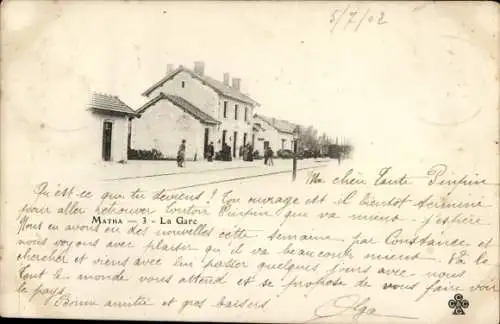 5/7/02
Matha — 3 — La Gare
Ma chèr Tante Pinpin
Qu'est ce que tu deviens? ! Ton ouvrage est il bientot terminé
pour aller retrouver tonton Pinpin que va mieux j'espère
Nous en avons eu des nouvelles cette semaine par Constance et
nous voyons avec plaisir qu'il va beaucoup mieux. Va le
chercher et viens avec lui passer quelques jours avec nous
tout le monde vous attend et se propose de vous faire voir
le pays Bonne amitié et gros baisers
Olga
C C C